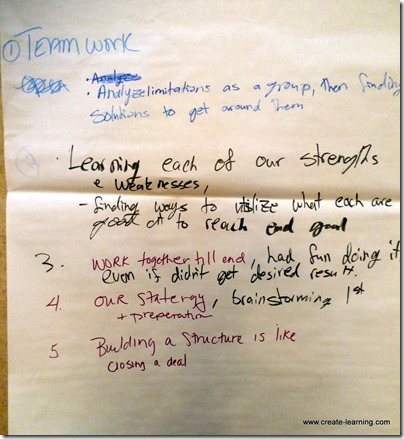 ① TEAMWORK
• Analyze
• Analyze limitations as a group, then finding
solutions to get around them
②
• Learning each of our strengths
& weaknesses,
- finding ways to utilize what each are
good at to reach end goal
3. WORK together till end, had fun doing it
even if didn't get desired result.
4. OUR Statergy, brainstorming 1st
+ preperation
5 Building a structure is like
closing a deal
www.create-learning.com